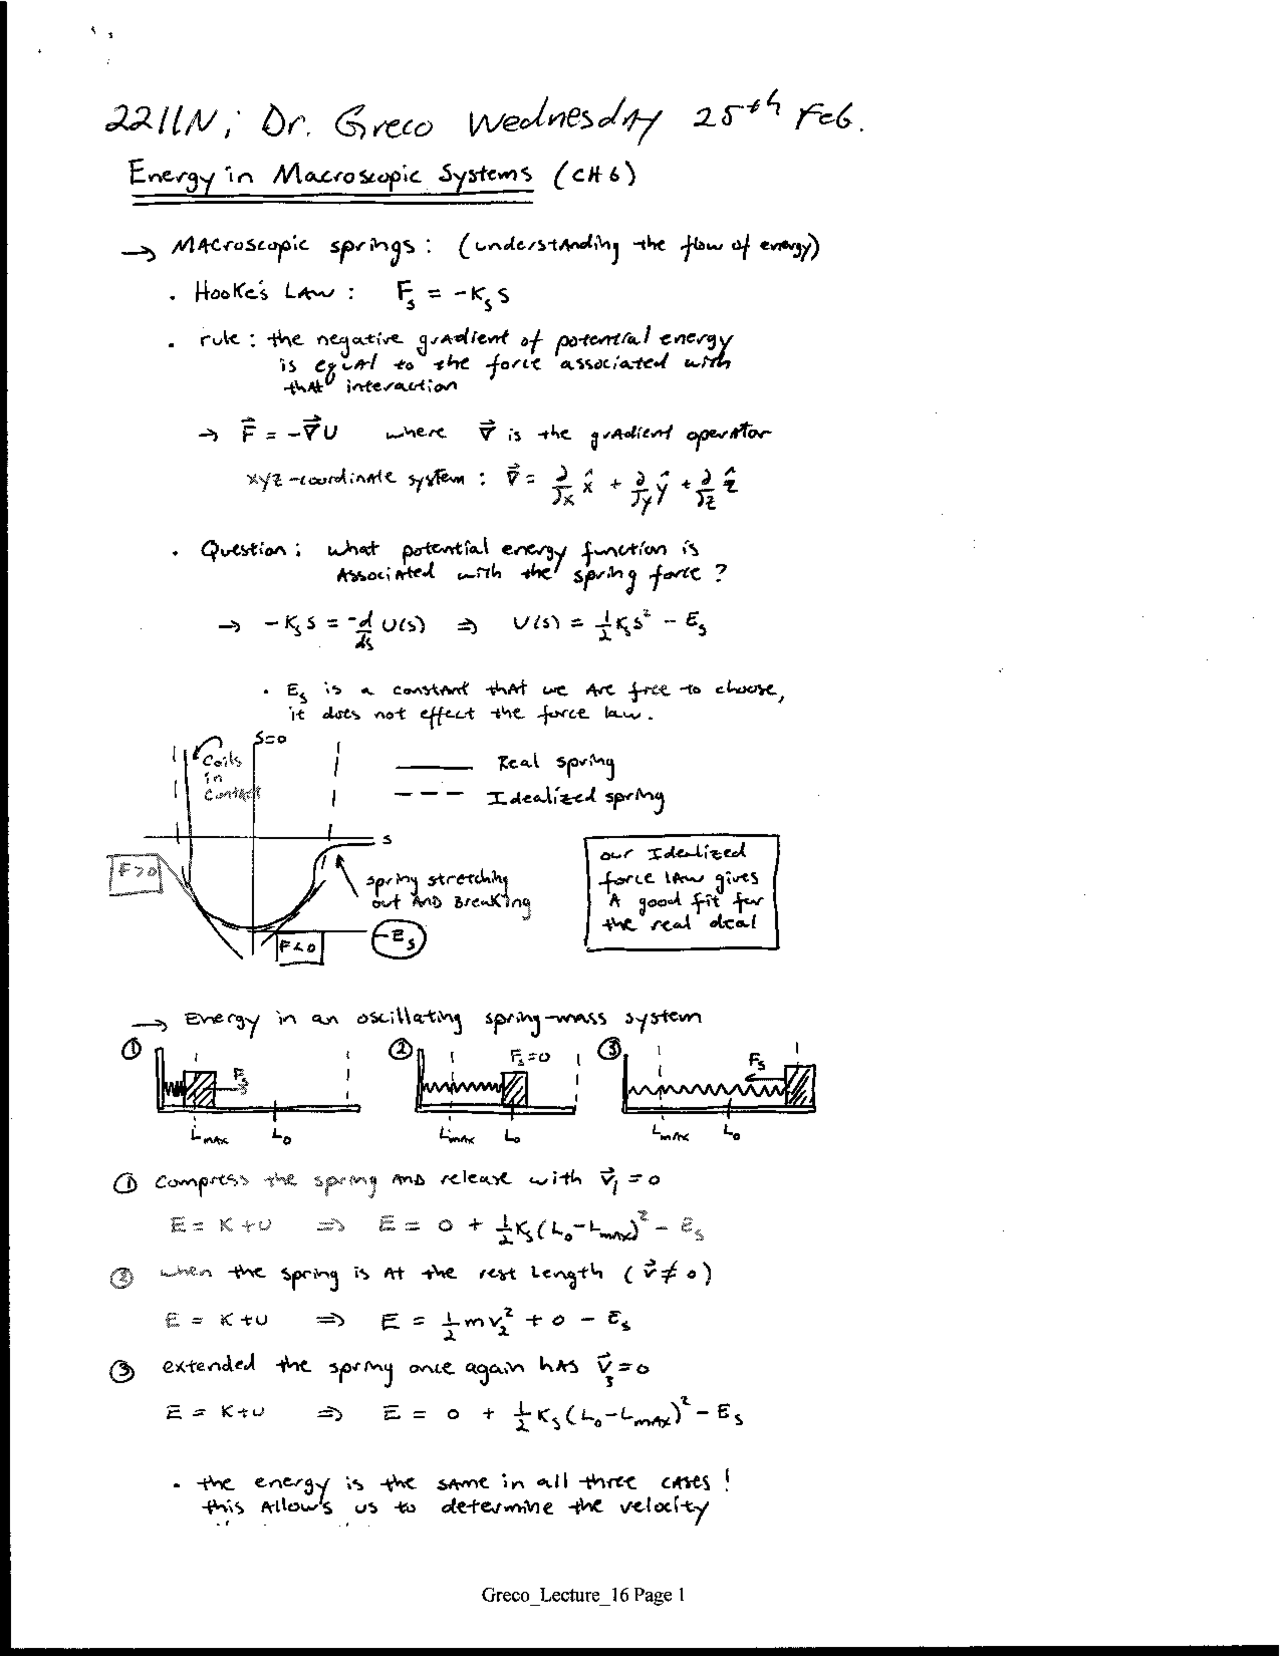 2211N; Dr. Greco Wednesday 25th Feb.
Energy in Macroscopic Systems (CH 6)
→ Macroscopic springs: (understanding the flow of energy)
• Hooke's Law: F_s = -K_s s
• rule: the negative gradient of potential energy
is equal to the force associated with
that interaction
→ F⃗ = -∇⃗U where ∇⃗ is the gradient operator
xyz-coordinate system: ∇⃗ = ∂/∂x x̂ + ∂/∂y ŷ + ∂/∂z ẑ
• Question: what potential energy function is
associated with the spring force?
→ -K_s s = -d/ds U(s) ⇒ U(s) = 1/2 K_s s² - E_s
• E_s is a constant that we are free to choose,
it does not effect the force law.
s=0
Coils
in
contact
Real spring
Idealized spring
s
F>0
spring stretching
out and breaking
F<0
-E_s
our Idealized
force law gives
a good fit for
the real deal
→ Energy in an oscillating spring-mass system
① ② ③
F_s F_s=0 F_s
L_max L_0 L_max L_0 L_max L_0
① compress the spring and release with v⃗_1 = 0
E = K+U ⇒ E = 0 + 1/2 K_s (L_0-L_max)² - E_s
② when the spring is at the rest length (v⃗ ≠ 0)
E = K+U ⇒ E = 1/2 mv_2² + 0 - E_s
③ extended the spring once again has v⃗_3 = 0
E = K+U ⇒ E = 0 + 1/2 K_s (L_0-L_max)² - E_s
• the energy is the same in all three cases!
this allow's us to determine the velocity
Greco_Lecture_16 Page 1